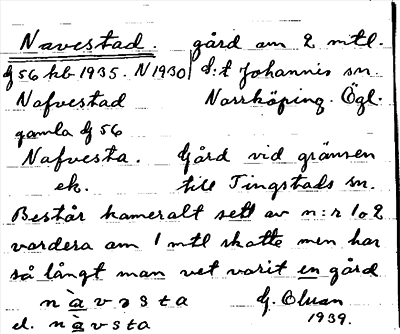 Navestad. gård om 2 mtl.
G 56 kb 1935. N 1930 S:t Johannis sn.
Nafvestad Norrköping. Ögl.
gamla G 56
Nafvesta. Gård vid gränsen
ek. till Tingstads sn.
Består kameralt sett av n:r 1 o 2
vardera om 1 mtl skatte men har
så långt man vet varit en gård
nàvəsta G. Olson
el. nàvsta 1939.